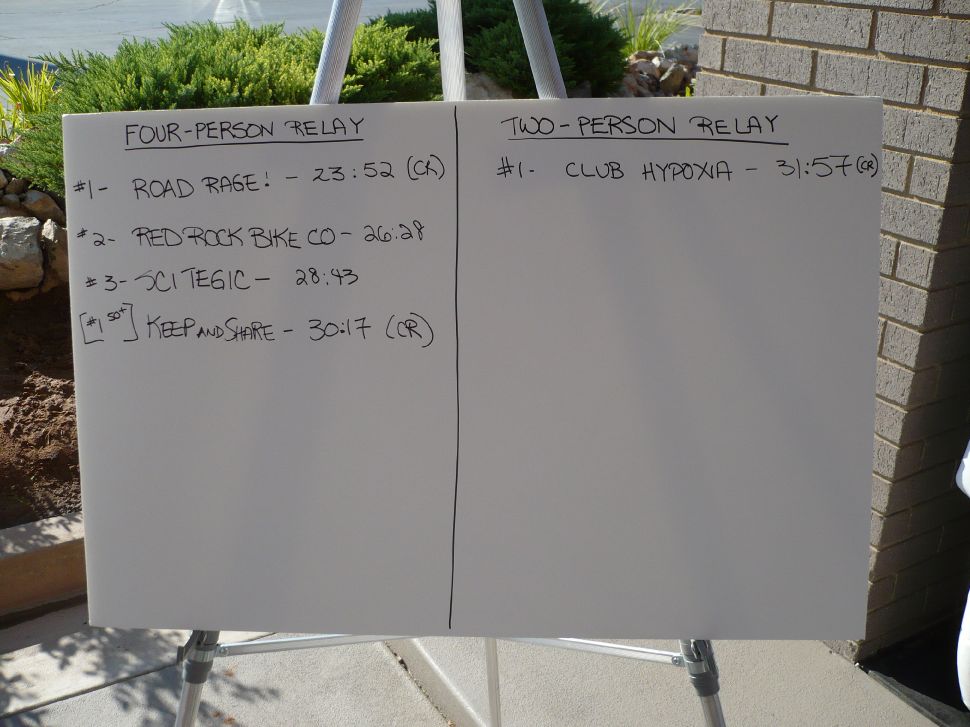 FOUR-PERSON RELAY
#1- ROAD RAGE! - 23:52 (CR)
#2- RED ROCK BIKE CO - 26:28
#3- SCITEGIC - 28:43
[#1 50+] KEEP AND SHARE - 30:17 (CR)
TWO-PERSON RELAY
#1- CLUB HYPOXIA - 31:57 (CR)